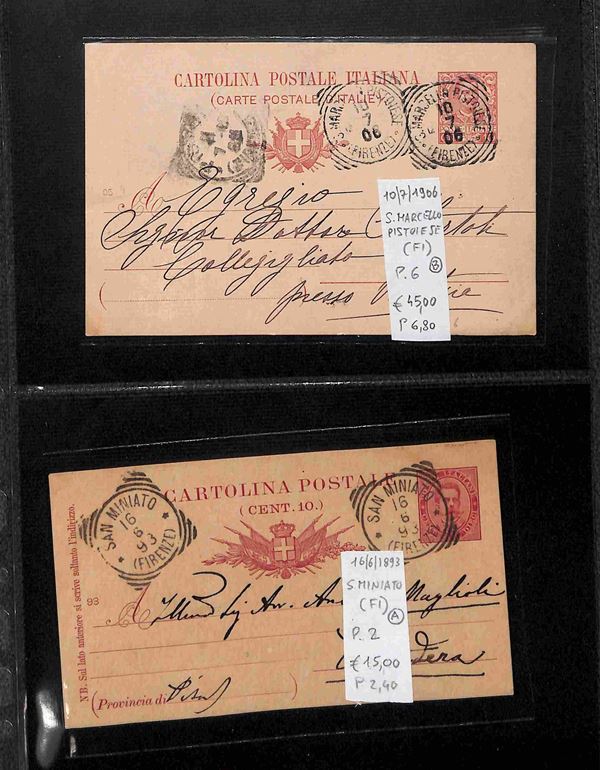 CARTOLINA POSTALE ITALIANA
(CARTE POSTALE D'ITALIE)
S. MARCELLO PISTOIESE
10
7
06
(FIRENZE)
S. MARCELLO PISTOIESE
10
7
06
(FIRENZE)
A
Egregio
Signor Dottor
Collegigliato
presso
10/7/1906
S. MARCELLO
PISTOIESE
(FI)
P. 6 B
€ 45,00
P 6,80
CARTOLINA POSTALE
(CENT. 10.)
SAN MINIATO
16
6
93
(FIRENZE)
SAN MINIATO
16
6
93
(FIRENZE)
NB. Sul lato anteriore si scrive soltanto l'indirizzo.
93
A Illmo Sig Av. Maglioli
(Provincia di Pisa)
16/6/1893
S. MINIATO
(FI) A
P. 2
€ 15,00
P 2,40